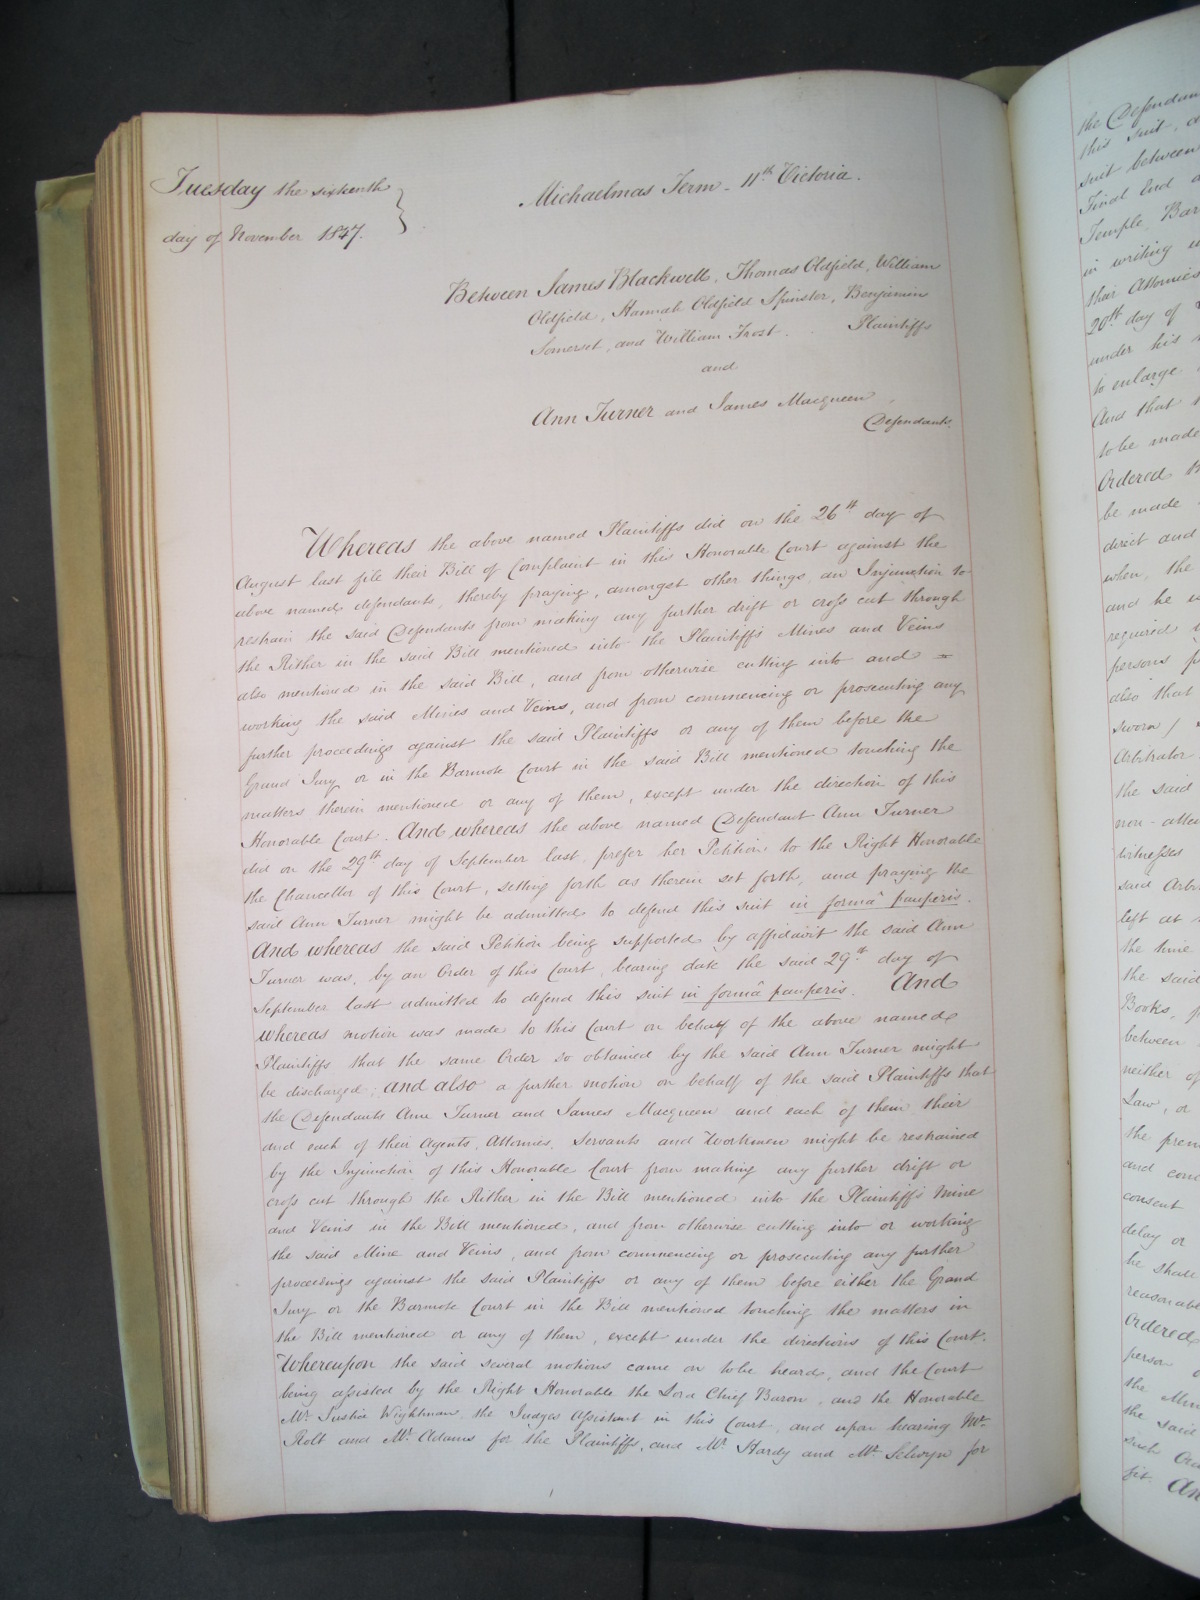 Tuesday the sixteenth
day of November 1847.
Michaelmas Term - 11th Victoria.
Between James Blackwell, Thomas Oldfield, William
Oldfield, Hannah Oldfield Spinster, Benjamin
Somerset, and William Frost. Plaintiffs
and
Ann Turner and James Macqueen
Defendants.
Whereas the above named Plaintiffs did on the 26th day of
August last file their Bill of Complaint in this Honorable Court against the
above named defendants, thereby praying, amongst other things, an Injunction to
restrain the said Defendants from making any further drift or cross cut through
the Rither in the said Bill mentioned into the Plaintiffs Mines and Veins
also mentioned in the said Bill, and from otherwise cutting into and =
working the said Mines and Veins, and from commencing or prosecuting any
further proceedings against the said Plaintiffs or any of them before the
Grand Jury or in the Barmote Court in the said Bill mentioned touching the
matters therein mentioned or any of them, except under the direction of this
Honorable Court. And whereas the above named Defendant Ann Turner
did on the 29th day of September last prefer her Petition to the Right Honorable
the Chancellor of this Court, setting forth as therein set forth, and praying the
said Ann Turner might be admitted to defend this suit in formâ pauperis.
And whereas the said Petition being supported by affidavit the said Ann
Turner was, by an Order of this Court, bearing date the said 29th day of
September last admitted to defend this suit in formâ pauperis. And
whereas motion was made to this Court on behalf of the above named
Plaintiffs that the same Order so obtained by the said Ann Turner might
be discharged; and also a further motion on behalf of the said Plaintiffs that
the Defendants Ann Turner and James Macqueen and each of them their
and each of their Agents, Attornies, Servants and Workmen might be restrained
by the Injunction of this Honorable Court from making any further drift or
cross cut through the Rither in the Bill mentioned into the Plaintiffs Mine
and Veins in the Bill mentioned, and from otherwise cutting into or working
the said Mine and Veins, and from commencing or prosecuting any further
proceedings against the said Plaintiffs or any of them before either the Grand
Jury or the Barmote Court in the Bill mentioned touching the matters in
the Bill mentioned or any of them, except under the directions of this Court.
Whereupon the said several motions came on to be heard, and the Court
being assisted by the Right Honorable the Lord Chief Baron, and the Honorable
Mr. Justice Wightman, the Judges Assistant in this Court, and upon hearing Mr.
Rolt and Mr. Adams for the Plaintiffs, and Mr. Hardy and Mr. Selwyn for
the Defendan
this suit,
suit between
Final End
Temple, Bar
in writing
their Attornies
20th day of
under his
to enlarge
And that
to be made
Ordered
be made
direct and
when, the
and he
required
persons
also that
sworn)
Arbitrator
the said
non-atten
witnesses
said Arbi
left at
the time
the said
Books,
between
neither of
Law, or
the prem
and
consent
delay or
he shall
reasonabl
Ordered
person
the Min
the said
such
fit. An